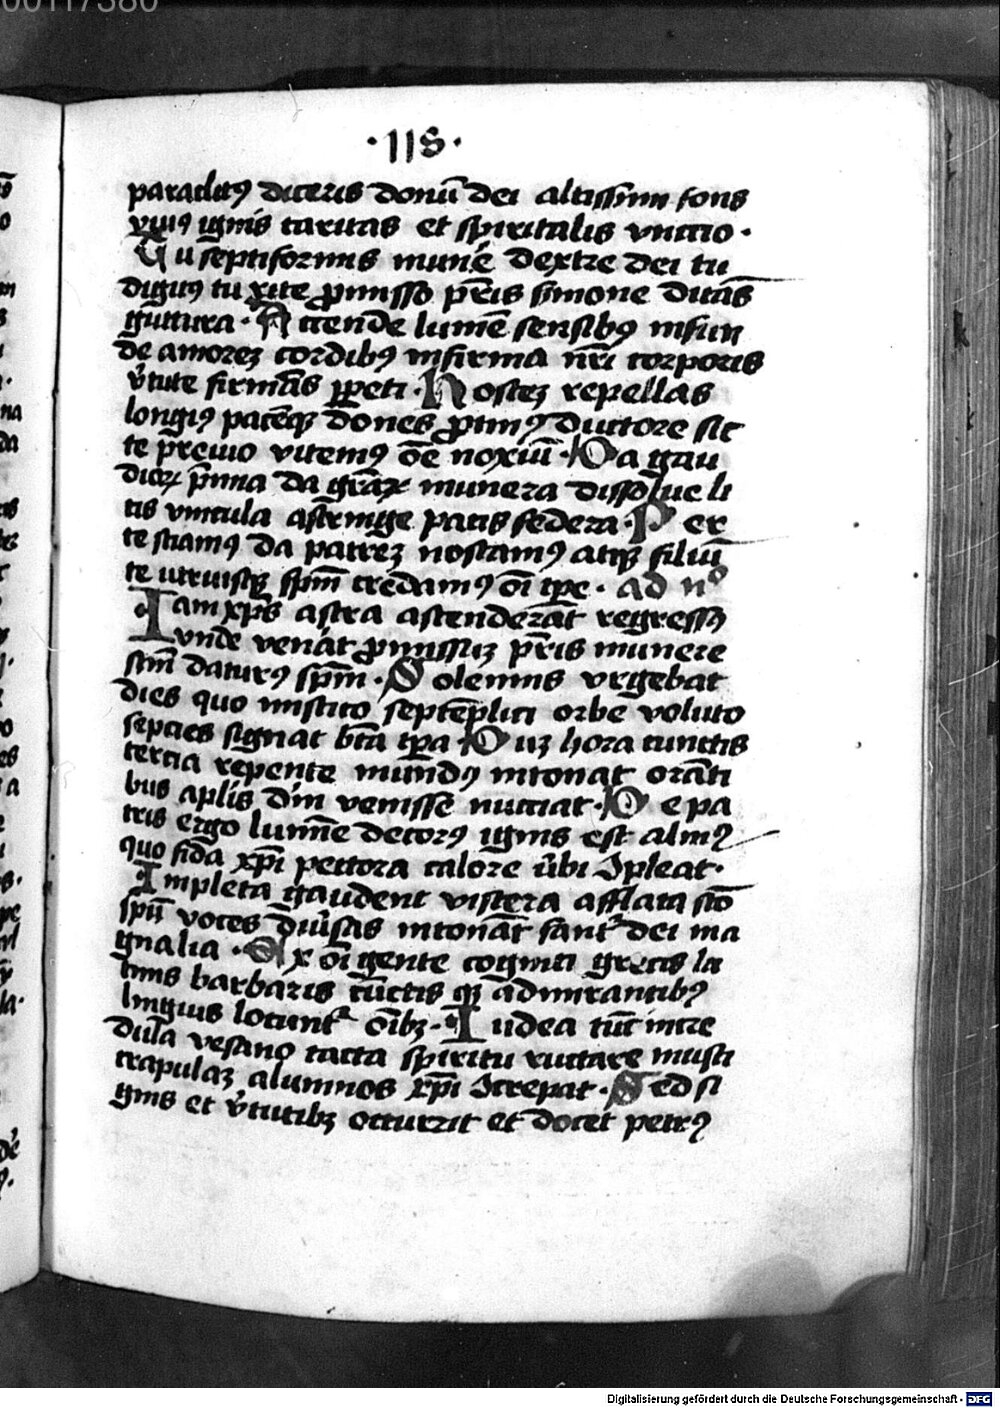 ·118·
paraclitꝰ diceris donū dei altissimi fons
viuꝰ ignis caritas et spiritalis vnctio ·
Tu septiformis mune᷑ dextre dei tu
digitꝰ tu rite ꝓmisso pr̄is s̄mone ditās
guttura · Accende lumē sensibꝰ infun
de amorez cordibꝰ infirma nr̄i corporis
v̓tute firmās ꝑpeti · Hostez repellas
longiꝰ pacēqꝫ dones ꝓtinꝰ ductore sic
te p̄reuio vitemꝰ ōe noxiū · Da gau
dioꝝ p̄mia da grāꝝ munera dissolue li
tis vincula astringe pacis federa · Per
te sciamꝰ da patrez noscamꝰ atqꝫ filiū
te utriusqꝫ sp̄m credamꝰ oī tp̄e · ad nᵒ
Iam xp̄s astra ascenderāt regressꝰ
vnde venāt ꝓmissuz pr̄is munere
scm̄ daturꝰ sp̄m · Solemnis vrgebat
dies quo mistico septēplici orbe voluto
sepcies signat bt̄a tp̄a · Cuz hora cunctis
tercia repente mundꝰ intonat orāti
bus aplis dm̄ venisse nūciat · De pa
tris ergo lumīe decorꝰ ignis est almꝰ
quo fida xp̄i pectora calore v̓bi ɔpleat ·
Impleta gaudent viscera afflata scō
spū voces diu̓sas intonāt fantᷣ dei ma
gnalia · Ex oī gente cogniti grecis la
tinis barbaris cūctis qꝫ admirantibꝰ
linguis locuntᷣ oībꝫ · Iudea tūc incre
dula vesano tacta spiritu ructare musti
crapulaz alumnos xp̄i ɔcrepat · Sed si
gnis et v̓tutibꝫ occurrit et docet petrꝰ
Digitalisierung gefördert durch die Deutsche Forschungsgemeinschaft - DFG